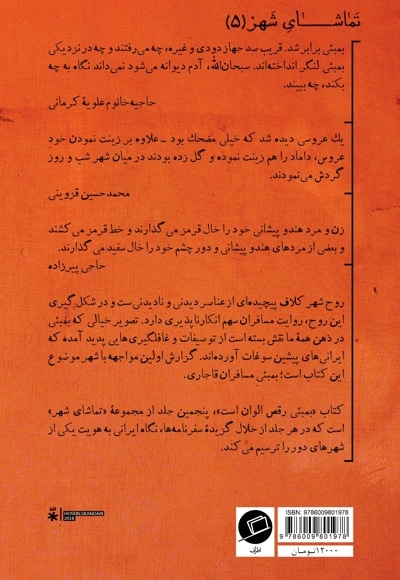 تماشای شهر (۵)
بمبئی برابر شد. قریب صد جهاز دودی و غیره، چه می‌رفتند و چه در نزدیکی
بمبئی لنگر انداخته‌اند. سبحان‌الله، آدم دیوانه می‌شود نمی‌داند نگاه به چه
بکند، چه ببیند.
حاجیه خانوم علویهٔ کرمانی
یك عروسی دیده شد که خیلی مضحك بود ـ علاوه بر زینت نمودن خودِ
عروس، داماد را هم زینت نموده و گل زده بودند در میان شهر شب و روز
گردش می‌نمودند.
محمدحسین قزوینی
زن و مرد هندو پیشانی خود را خال قرمز می گذارند و خط قرمز می کشند
و بعضی از مردهای هندو پیشانی و دور چشم خود را خال سفید می گذارند.
حاجی پیرزاده
روح شهر کلاف پیچیده‌ای از عناصر دیدنی و نادیدنی ست و در شکل گیری
این روح، روایت مسافران سهم انکارناپذیری دارد. تصویر خیالی که بمبئی
در ذهن همهٔ ما نقش بسته است از توصیفات و غافلگیری‌هایی پدید آمده که
ایرانی‌های پیشین سوغات آورده‌اند. گزارش اولین مواجهه با شهر موضوع
این کتاب است؛ بمبئی مسافران قاجاری.
کتاب «بمبئی رقص الوان است»، پنجمین جلد از مجموعهٔ «تماشای شهر»
است که در هر جلد از خلال گزیدهٔ سفرنامه‌ها، نگاه ایرانی به هویت یکی از
شهرهای دور را ترسیم می کند.
HOSEIN SKANDARI
2018
اطراف
ISBN: 9786009801978
9 786009 801978
۱۲۰۰۰ تومان